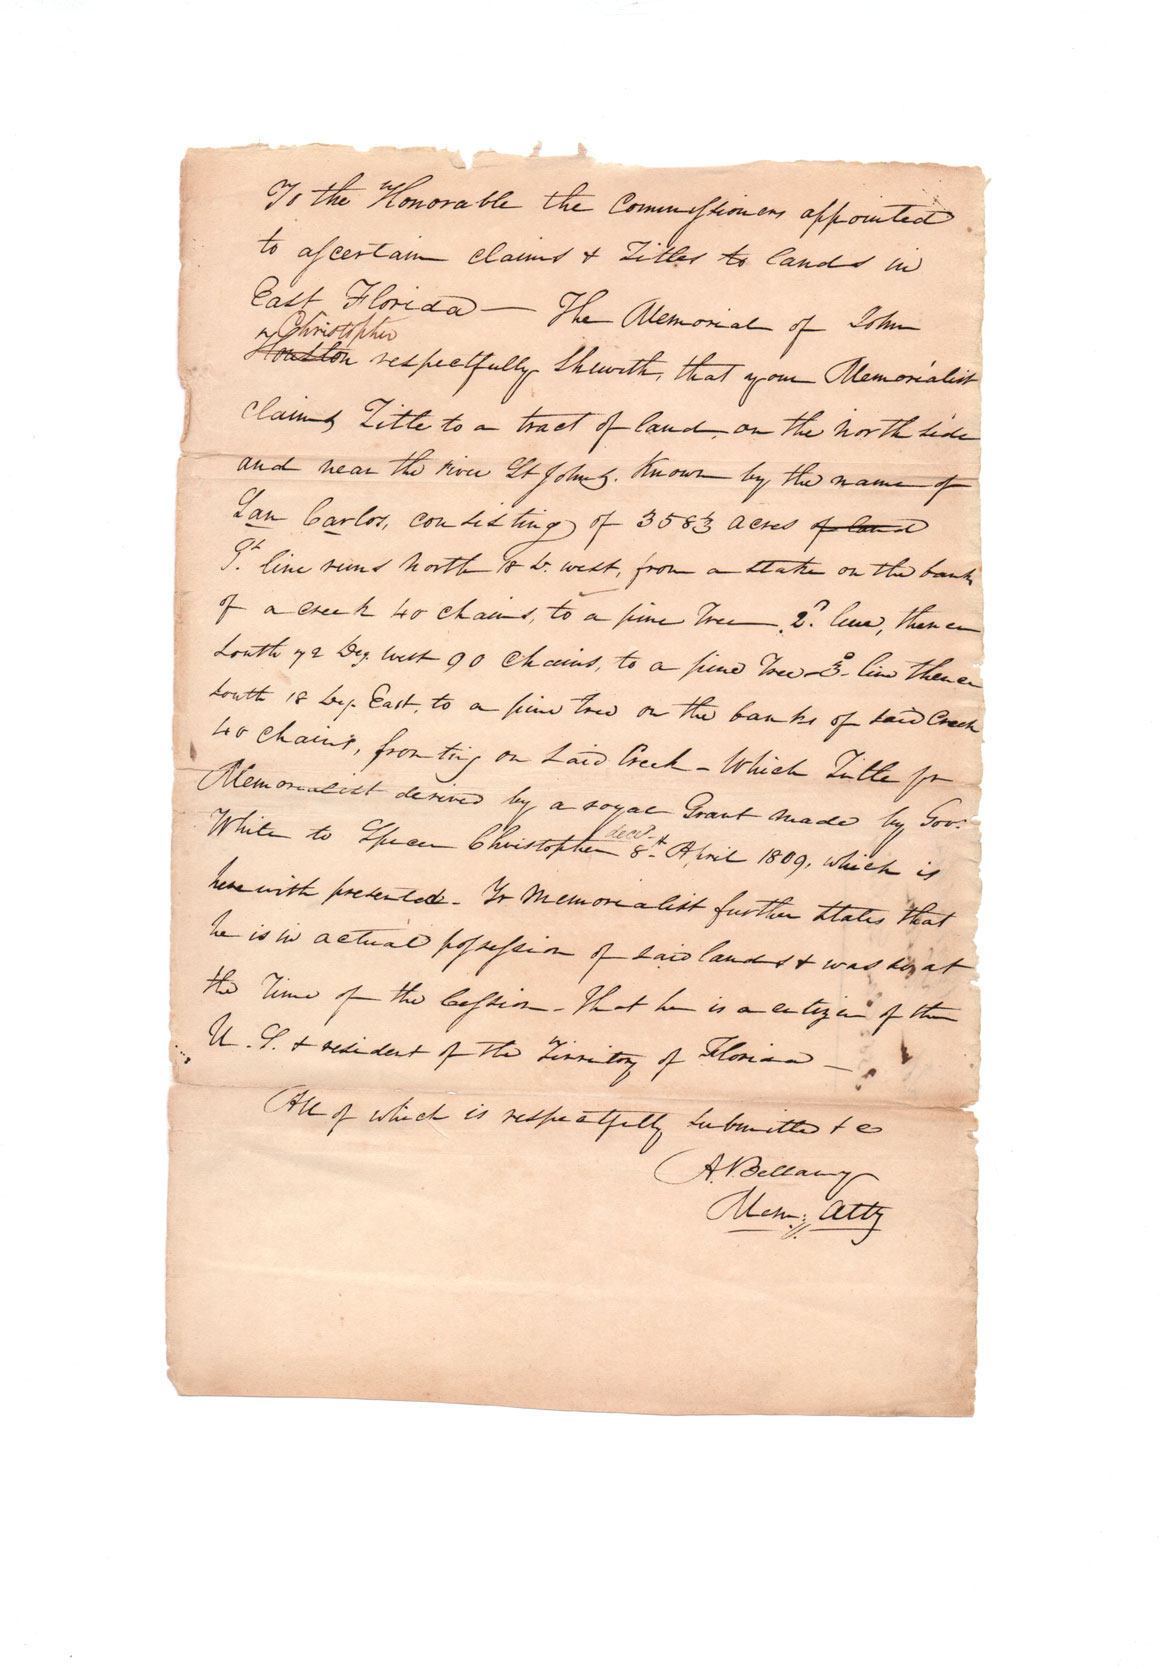 To the Honorable the Commissioners appointed
to ascertain claims & Titles to lands in
East Florida — The Memorial of John
Christopher
Houston respectfully Sheweth, that your Memorialist
claims Title to a tract of land, on the North side
and near the river St Johns. Known by the name of
San Carlos, consisting of 358 1/3 acres of land
1st. line runs North 18 D. west, from a stake on the bank
of a creek 40 chains, to a pine Tree. 2d. line, thence
South 72 Deg. West 90 Chains, to a pine Tree - 3d. line thence
South 18 Deg. East, to a pine Tree on the banks of said Creek
40 Chains, fronting on said Creek - Which Title yr
Memorialist derived by a royal Grant made by Gov.
White to Spicer Christopher decd. 8th. April 1809, which is
herewith presented. Yr Memorialist further states that
he is in actual possession of said lands & was so at
the Time of the Cession - That he is a citizen of the
U. S. & resident of the Territory of Florida —
All of which is respectfully submitted &c
A. Bellamy
Mem: Atty